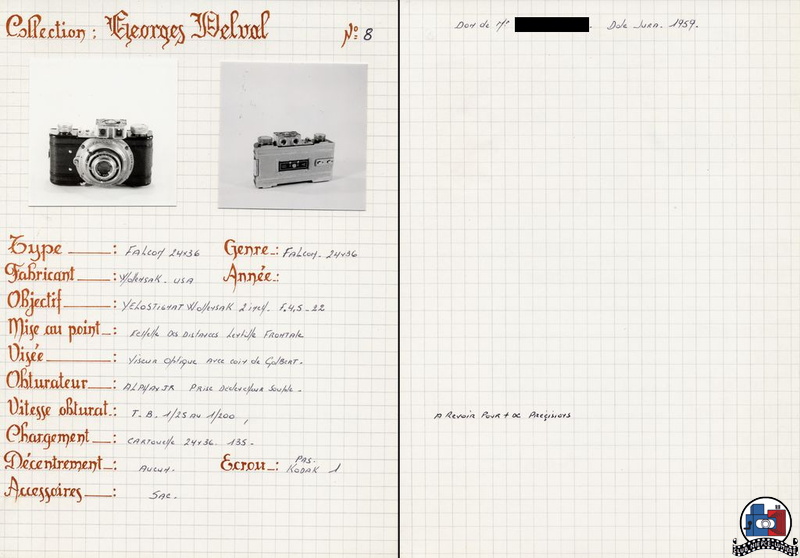 Collection : Georges Delval
N° 8
Type : FALCON 24x36
Genre : FALCON - 24x36
Fabricant : Wollensak - USA
Année :
Objectif : VELOSTIGMAT Wollensak 2 inch. F.4,5 - 22
Mise au point : Echelle Des Distances Lentille Frontale
Visée : Viseur Optique avec coin de GALBERT -
Obturateur : ALPHAX JR Prise Déclencheur Souple -
Vitesse obturat. : T. B. 1/25 AU 1/200,
Chargement : CARTOUCHE 24x36. 135 -
Décentrement : AUCUN.
Ecrou : PAS. KODAK 1
Accessoires : SAC -
Don de Mr
Dole Jura. 1959.
A Revoir Pour + de Précisions